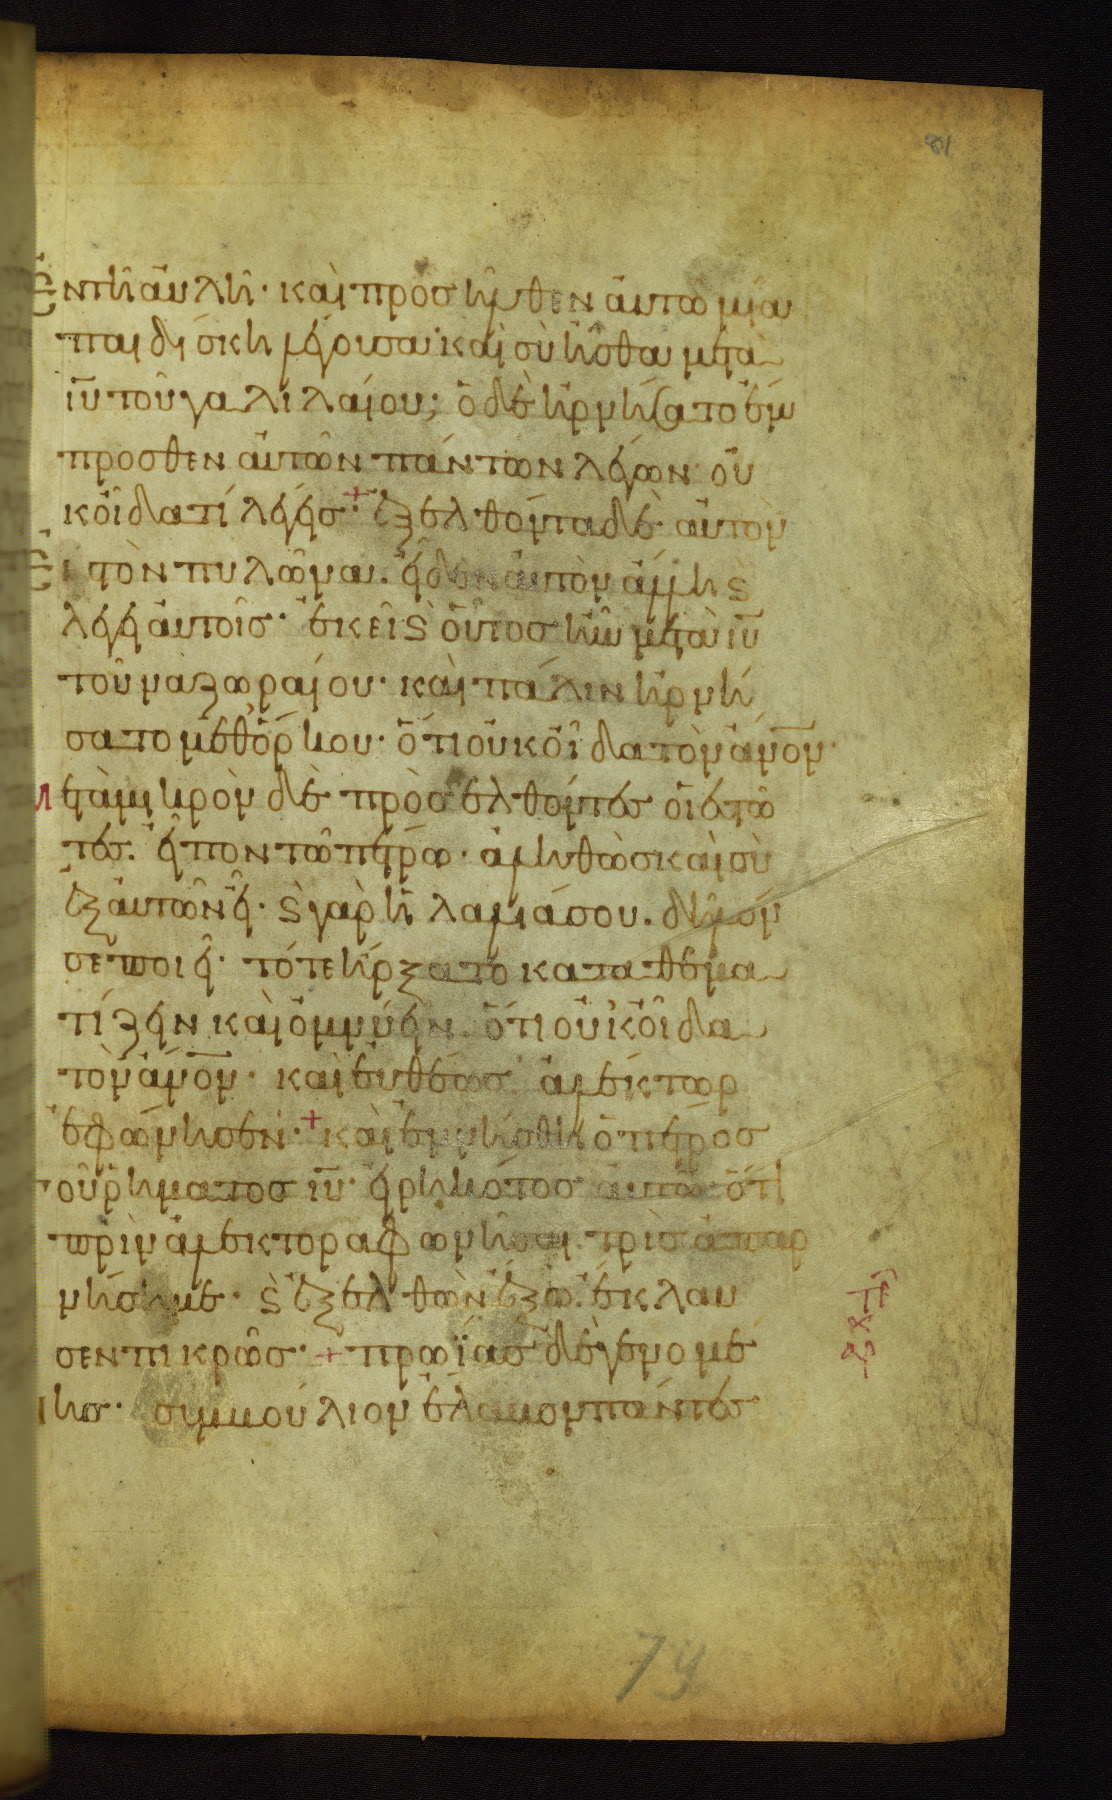 81
ἐν τῆ αὐλῆ· καὶ προσῆλθεν αὐτῶ μία
παιδίσκη λέγουσα· καὶ σὺ ἦσθα μετὰ
ἰυ τοῦ γαλιλαίου; ὁ δὲ ἠρνήσατο ἔμ
προσθεν αὐτῶν πάντων λέγων· οὐ
κ οἶδα τί λέγεις· + ἐξελθόντα δὲ αὐτὸν
εἰς τὸν πυλῶνα. εἶδεν αὐτὸν ἄλλη ϛ
λέγει αὐτοῖς· ἐκεῖ ϛ οὗτος ἦν μετὰ ἰυ
τοῦ ναζωραίου· καὶ πάλιν ἠρνή
σατο μεθ ὅρκου· ὅτι οὐκ οἶδα τὸν ἄνον·
Μετὰ μικρὸν δὲ προσελθόντες οἱ ἑστῶ
τες. εἶπον τῶ πέτρω· ἀληθῶς καὶ σὺ
ἐξ αὐτῶν εἶ· ϛ γὰρ ἡ λαλιά σου. δῆλόν
σε ποιεῖ· τότε ἤρξατο καταθεμα
τίζειν καὶ ὀμνύειν. ὅτι οὐκ οἶδα
τὸν ἄνον· καὶ εὐθέως ἀλέκτωρ
ἐφώνησεν· + καὶ ἐμνήσθη ὁ πέτρος
τοῦ ῥήματος ἰυ· εἰρηκότος αὐτῶ ὅτι
πρὶν ἀλέκτορα φωνῆσαι τρὶς ἀπαρ
νήση με· ϛ ἐξελθὼν ἔξω. ἔκλαυ
σεν πικρῶς· + πρωΐας δὲ γενομέ
νης· συμβούλιον ἔλαβον πάντες
79